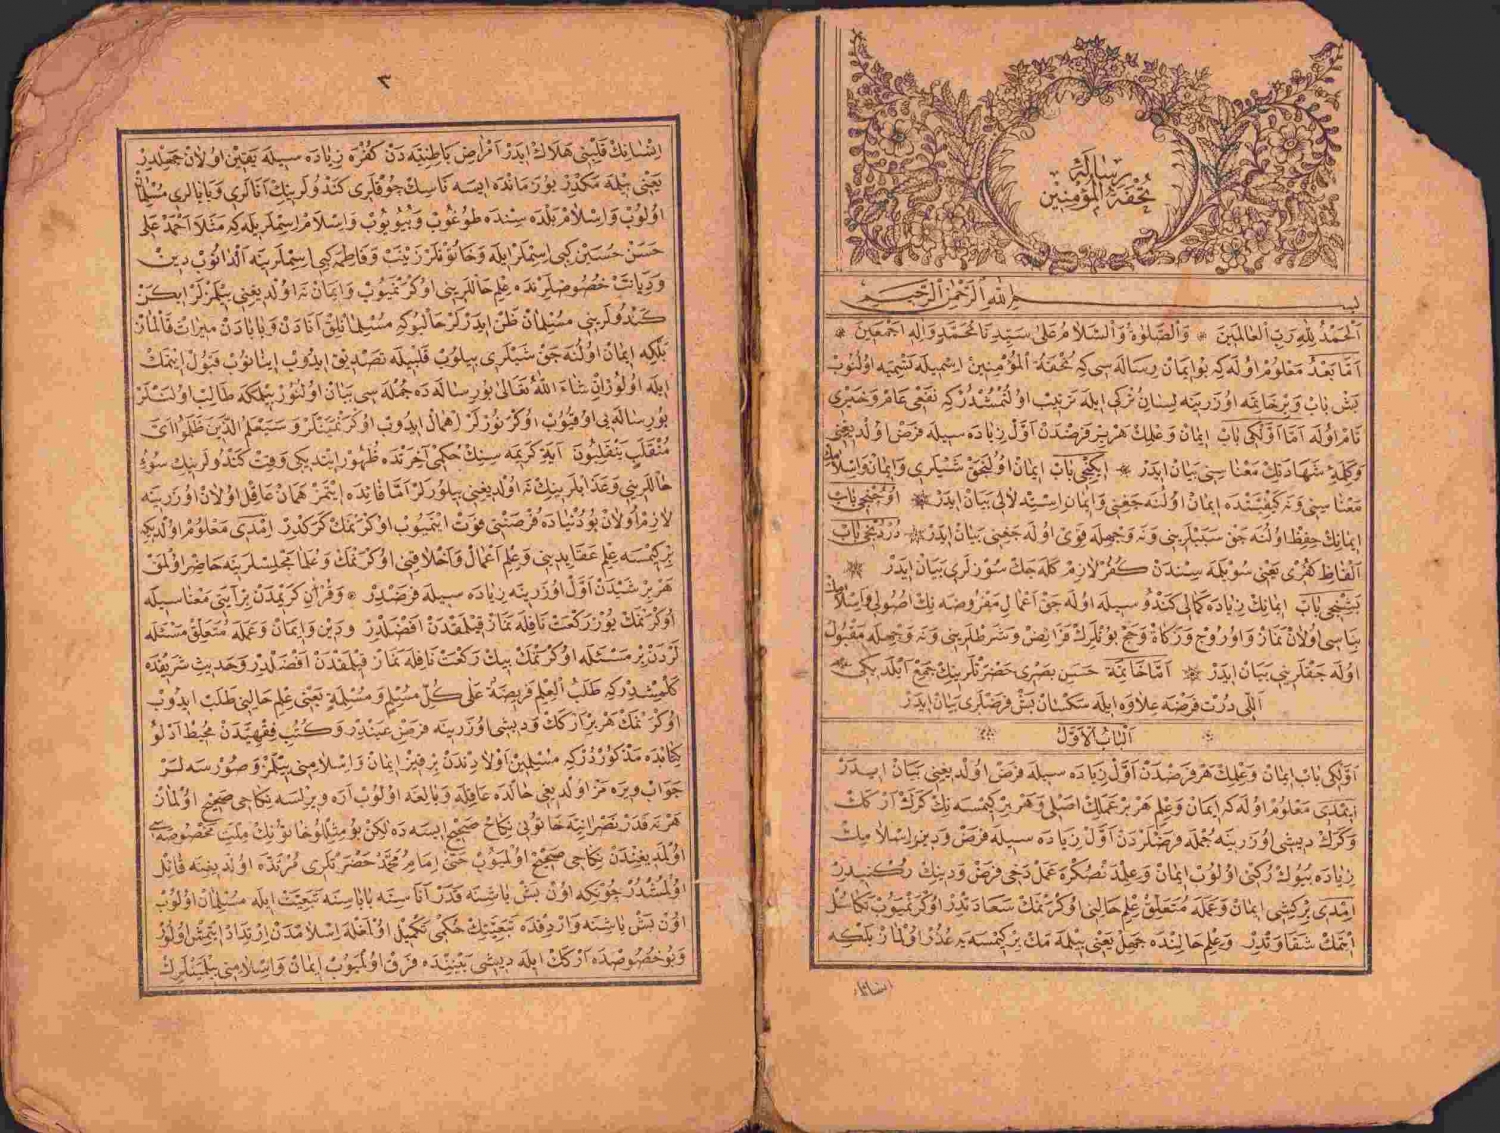 رسالۀ
تحفة المؤمنين
بسم الله الرحمن الرحيم
اَلْحَمْدُ لِلّٰهِ رَبِّ الْعَالَمِينَ ❋ وَالصَّلٰوةُ وَالسَّلَامُ عَلٰى سَيِّدِنَا مُحَمَّدٍ وَاٰلِهِ اَجْمَعِينَ ❋
اَمَّا بَعْدُ مَعْلُومْ اوُلَه كِه بُو ايمَانْ رِسَالَه سِى كِه تُحْفَةُ الْمُؤْمِنِينَ اِسْمِيلَه تَسْمِيَه اوُلُنُوبْ
بَشْ بَابْ وَبِرْ خَاتِمَه اوُزَرِينَه لِسَانِ تُرْكِى اِيلَه تَرْتِيبْ اوُلُنْمُشْدُرْ كِه نَفْعِى عَامْ وَخَيْرِى
تَامْ اوُلَه اَمَّا اَوَّلْكِى بَابْ اِيمَانْ وَعِلْمِكْ هَرْ بِرْ فَرْضْدَنْ اَوَّلْ زِيَادَه سِيلَه فَرْضْ اوُلْدِيغِنِى
وَكَلِمَۀِ شَهَادَتِكْ مَعْنَا سِنِى بَيَانْ اِيدَرْ ❋ اِيكِنْجِى بَابْ اِيمَانْ اوُلُنَجَقْ شَيْلَرِى وَاِيمَانْ وَاِسْلَامِكْ
مَعْنَا سِنِى وَنَه كَيْفِيَّتْدَه اِيمَانْ اوُلُنَه جَغِنِى وَاِيمَانِ اِسْتِدْلَالِى بَيَانْ اِيدَرْ ❋ اوُچُنْجِى بَابْ
اِيمَانِكْ حِفْظْ اوُلُنَه جَقْ سَبَبْلَرِينِى وَنَه وَجْهِلَه قَوِى اوُلَه جَغِنِى بَيَانْ اِيدَرْ ❋ دُرْدُنْجِى بَابْ
اَلْفَاظِ كُفْرِى يَعْنِى سُويْلَه مَسِنْدَنْ كُفُرْ لَازِمْ كَلَه جَكْ سُوزْلَرِى بَيَانْ اِيدَرْ ❋
بَشِنْجِى بَابْ اِيمَانِكْ زِيَادَه كَمَالِى كَنْدُو سِيلَه اوُلَه جَقْ اَعْمَالِ مَفْرُوضَه نِكْ اُصُولِى وَاِسْلَامِكْ
بِنَاسِى اوُلَانْ نَمَازْ وَاوُرُوجْ وَزَكَاةْ وَحَجْ بُونْلَرِكْ فَرَائِضْ وَشَرْطْلَرِينِى وَنَه وَجْهِلَه مَقْبُولْ
اوُلَه جَقْلَرِينِى بَيَانْ اِيدَرْ ❋ اَمَّا خَاتِمَه حَسَنِ بَصْرِى حَضْرَتْلَرِينِكْ جَمْعْ اَيْلَدِيكِى
اَللِّى دُرْتْ فَرْضَه عِلَاوَه اِيلَه سَكْسَانْ بَشْ فَرْضْلَرِى بَيَانْ اِيدَرْ
اَلْبَابُ الْاَوَّلُ
اَوَّلْكِى بَابْ اِيمَانْ وَعِلْمِكْ هَرْ فَرْضْدَنْ اَوَّلْ زِيَادَه سِيلَه فَرْضْ اوُلْدِيغِنِى بَيَانْ اِيدَرْ
اِيمْدِى مَعْلُومْ اوُلَه كِه اِيمَانْ وَعِلِمْ هَرْ بِرْ عَمَلِكْ اَصْلِى وَهَرْ بِرْ كِيمْسَه نِكْ كَرَكْ اَرْكَكْ
وَكَرَكْ دِيشِى اوُزَرِينَه جُمْلَه فَرْضْلَرْدَنْ اَوَّلْ زِيَادَه سِيلَه فَرْضْ وَدِينِ اِسْلَامِكْ
زِيَادَه بُيُوكْ رُكْنِى اوُلُوبْ اِيمَانْ وَعِلِمْدَنْ صُكْرَه عَمَلْ دَخِى فَرْضْ وَدِينِكْ رُكْنِيدِرْ
اِمْدِى بِرْ كِيشِى اِيمَانْ وَعَمَلَه مُتَعَلِّقْ عِلْمِ حَالِنِى اوُكْرَنْمَكْ سَعَادَتْدُرْ اوُكْرَنْمَيُوبْ تَكَاسُلْ
اِيتْمَكْ شَقَاوَتْدِرْ وَعِلْمِ حَالِنْدَه جَهْلْ يَعْنِى بِيلْمَه مَكْ بِرْ كِيمْسَه يَه عُذُرْ اوُلْمَازْ بَلْكِه
انسانك
٣
اِنْسَانِكْ قَلْبِنِى هَلَاكْ اِيدَرْ اَمْرَاضِ بَاطِنِيَّه دَنْ كُفْرَه زِيَادَه سِيلَه يَقِينْ اوُلَانْ جَهِلْدِرْ
يَعْنِى بِيلْمَه مَكْدِرْ بُو زَمَانْدَه اِيسَه نَاسِكْ چُوقْلَرِى كَنْدُولَرِينِكْ اَنَالَرِى وَبَابَالَرِى مُسْلِمَانْ
اوُلُوبْ وَاِسْلَامْ بَلْدَه سِنْدَه طُوغُوبْ وَبُيُويُوبْ وَاِسْلَامْ اِسِمْلَرِيلَه كِه مَثَلَا اَحْمَدْ عَلِى
حَسَنْ حُسَيْنْ كِبِى اِسِمْلَرْ اِيلَه وَخَاتُونْلَرْ زَيْنَبْ وَفَاطِمَه كِبِى اِسِمْلَرِينَه اَلْدَانُوبْ دِينْ
وَدِيَانَتْ خُصُوصْلَرِنْدَه عِلْمِ حَالْلَرِينِى اوُكْرَنْمَيُوبْ وَاِيمَانْ نَه اوُلْدِيغِنِى بِيلْمَزْلَرْ اِيكَنْ
كَنْدُولَرِينِى مُسْلِمَانْ ظَنْ اِيدَرْلَرْ حَالْبُوكِه مُسْلِمَانْلِقْ اَنَادَنْ وَبَابَادَنْ مِيرَاثْ قَالْمَازْ
بَلْكِه اِيمَانْ اوُلُنَه جَقْ شَيْلَرِى بِيلُوبْ قَلْبِيلَه تَصْدِيقْ اِيدُوبْ اِينَانُوبْ قَبُولْ اِيتْمَكْ
اِيلَه اوُلُورْ اِنْ شَاءَ اللّٰهُ تَعَالٰى بُو رِسَالَه دَه جُمْلَه سِى بَيَانْ اوُلُنُورْ بِيلْمَكْلِكَه طَالِبْ اوُلَنْلَرْ
بُو رِسَالَه يِى اوُقُيُوبْ اوُكْرَنُورْلَرْ اِهْمَالْ اِيدُوبْ اوُكْرَنْمَيَنْلَرْ وَسَيَعْلَمُ الَّذِينَ ظَلَمُوا اَىَّ
مُنْقَلَبٍ يَنْقَلِبُونَ اٰيَةِ كَرِيمَه سِنِكْ حُكْمِى اٰخِرَتْدَه ظُهُورْ اِيتْدِيكِى وَقِتْ كَنْدُولَرِينِكْ سُوءِ
حَالْلَرِينِى وَعَذَابْلَرِينِكْ نَه اوُلْدِيغِنِى بِيلُورْلَرْ اَمَّا فَائِدَه اِيتْمَزْ هَمَانْ عَاقِلْ اوُلَانْ اوُزَرِينَه
لَازِمْ اوُلَانْ بُو دُنْيَادَه فُرْصَتِى فَوْتْ اِيتْمَيُوبْ اوُكْرَنْمَكْ كَرَكْدِرْ اِمْدِى مَعْلُومْ اوُلْدِيكِه
بِرْ كِيمْسَه عِلْمِ عَقَايِدِينِى وَعِلْمِ اَعْمَالْ وَاَخْلَاقِنِى اوُكْرَنْمَكْ وَعُلَمَا مَجْلِسْلَرِينَه حَاضِرْ اوُلْمَقْ
هَرْ بِرْ شَيْدَنْ اَوَّلْ اوُزَرِينَه زِيَادَه سِيلَه فَرْضْدِرْ ❋ وَقُرْاٰنِ كَرِيمْدَنْ بِرْ اٰيَتِى مَعْنَاسِيلَه
اوُكْرَنْمَكْ يُوزْ رَكْعَتْ نَافِلَه نَمَازْ قِيلْمَقْدَنْ اَفْضَلْدِرْ وَدِينْ وَاِيمَانْ وَعَمَلَه مُتَعَلِّقْ مَسْئَلَه
لَرْدَنْ بِرْ مَسْئَلَه اوُكْرَنْمَكْ بِيكْ رَكْعَتْ نَافِلَه نَمَازْ قِيلْمَقْدَنْ اَفْضَلْدِرْ وَحَدِيثِ شَرِيفْدَه
كَلْمِشْدِرْ كِه طَلَبُ الْعِلْمِ فَرِيضَةٌ عَلٰى كُلِّ مُسْلِمٍ وَمُسْلِمَةٍ يَعْنِى عِلْمِ حَالِنِى طَلَبْ اِيدُوبْ
اوُكْرَنْمَكْ هَرْ بِرْ اَرْكَكْ وَدِيشِى اوُزَرِينَه فَرْضِ عَيْنْدِرْ وَكُتُبِ فِقْهِيَّه دَنْ مُحِيطْ
كِتَابْدَه مَذْكُورْدُرْ كِه مُسْلِمِينْ اَوْلَادِنْدَنْ بِرْ قِيزْ اِيمَانْ وَاِسْلَامِنِى بِيلْمَزْ وَصُورْسَه لَرْ
جَوَابْ وِيرَه مَزْ اوُلْدِيغِى حَالْدَه عَاقِلَه وَبَالِغَه اوُلُوبْ اَرَه وِيرِلْسَه نِكَاحِى صَحِيحْ اوُلْمَازْ
هَرْ نَه قَدَرْ نَصْرَانِيَّه خَاتُونِى نِكَاحْ صَحِيحْ اِيسَه دَه لٰكِنْ بُو مِثِللُو خَاتُونِكْ مِلَّتِ مَخْصُوصَه سِى
اوُلْمَدِيغِنْدَنْ نِكَاحِى صَحِيحْ اوُلْمَيُوبْ حَتّٰى اِمَامِ مُحَمَّدْ حَضْرَتْلَرِى مُرْتَدَّه اوُلْدِيغِنَه قَائِلْ
اوُلْمُشْدُرْ چُونْكِه اوُنْ بَشْ يَاشِنَه قَدَرْ اَنَاسِنَه بَابَاسِنَه تَبَعِيَّتْ اِيلَه مُسْلِمَانْ اوُلُوبْ
اوُنْ بَشْ يَاشِنَه وَارْدِقْدَه تَبَعِيَّتِكْ حُكْمِى تَكْمِيلْ اوُلْمَغْلَه اِسْلَامْدَنْ اِرْتِدَادْ اِيتْمِشْ اوُلُورْ
وَبُو خُصُوصْدَه اَرْكَكْ اِيلَه دِيشِى بَيْنِنْدَه فَرْقْ اوُلْمَيُوبْ اِيمَانْ وَاِسْلَامِنِى بِيلْمَيَنْلَرِكْ